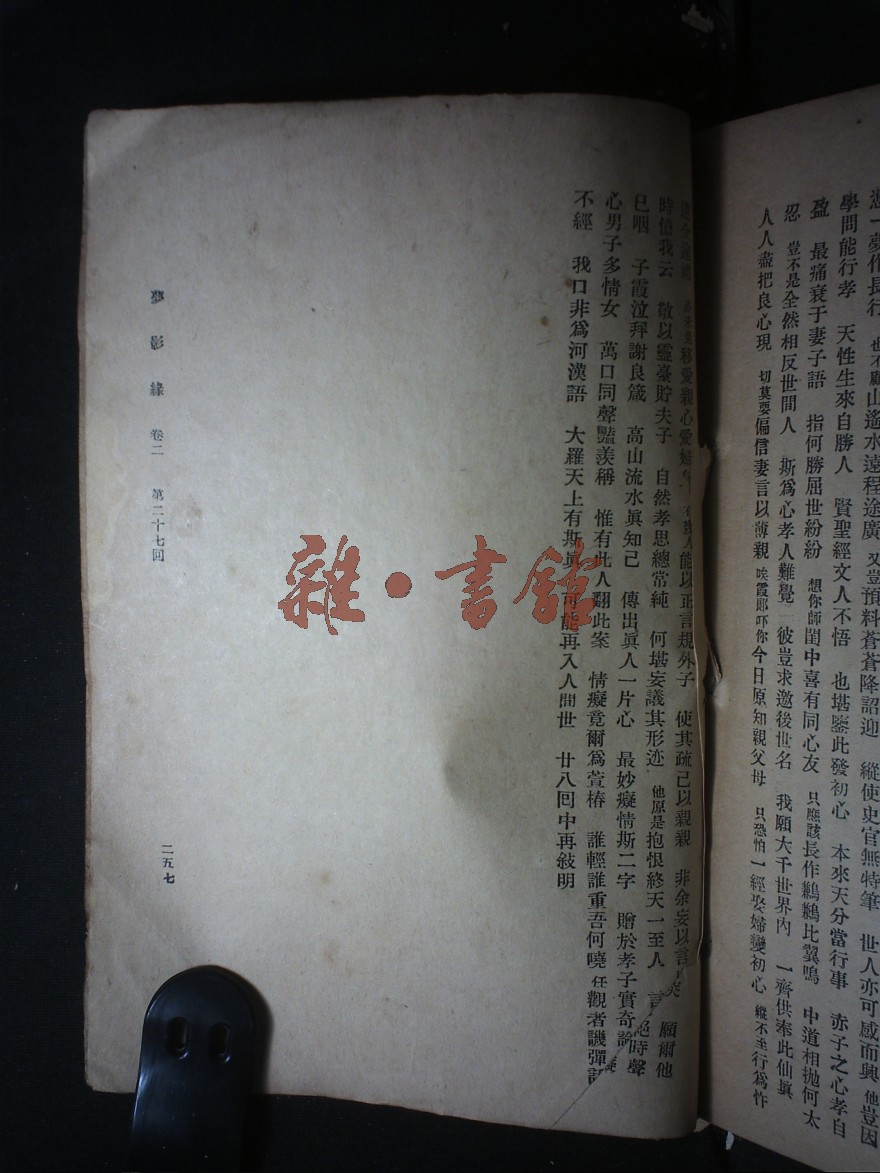 一夢作長行 也不顧山遙水遠程途廣 又豈預料蒼蒼降詔迎 縱使史官無特筆 世人亦可感而興 他豈因
學問能行孝 天性生來自勝人 賢聖經文人不悟 也堪鑒此發初心 本來天分當行事 赤子之心孝自
盈 最痛衰于妻子語 指何勝屈世紛紛 想你師閨中喜有同心友 只應該長作鶼鶼比翼鳴 中道相拋何太
忍 豈不是全然相反世間人 斯爲心孝人難覺 彼豈求邀後世名 我願大千世界內 一齊供奉此仙眞
人人盡把良心現 切莫要偏信妻言以薄親 唉霞郎吓你今日原知親父母 只恐怕一經娶婦變初心 縱不至行爲忤
移愛親心愛婦 能以正言規外子 使其疏己以親親 非余妄以言
時值我云 敬以靈臺貯夫子 自然孝思總常純 何堪妄議其形迹 他原是抱恨終天一至人 願爾他
已咽 子霞泣拜謝良箴 高山流水眞知己 傳出眞人一片心 最妙癡情斯二字 贈於孝子實奇論 絕時聲
心男子多情女 萬口同聲豔羨稱 惟有此人翻此案 情癡竟爾爲萱椿 誰輕誰重吾何曉 任觀者譏彈
不經 我口非爲河漢語 大羅天上有斯眞 可能再入人間世 廿八回中再敍明
夢影緣 卷二 第二十七回
二五七
雜·書館